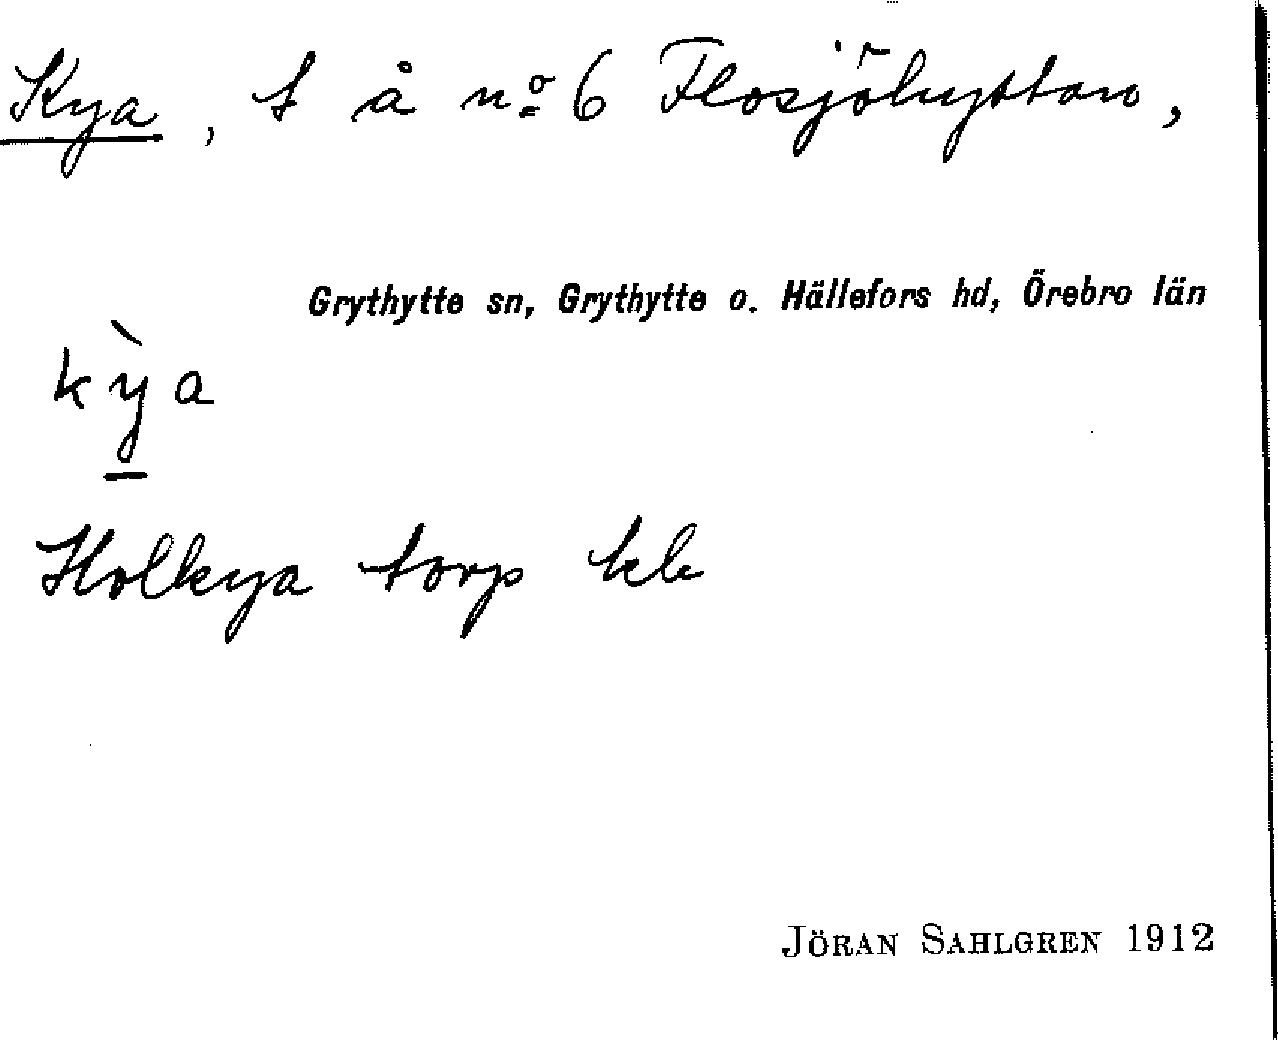 Kya, t å nº 6 Flosjöhyttan,
Grythytte sn, Grythytte o. Hällefors hd, Örebro län
kỳa
Holkya torp kb
JÖRAN SAHLGREN 1912